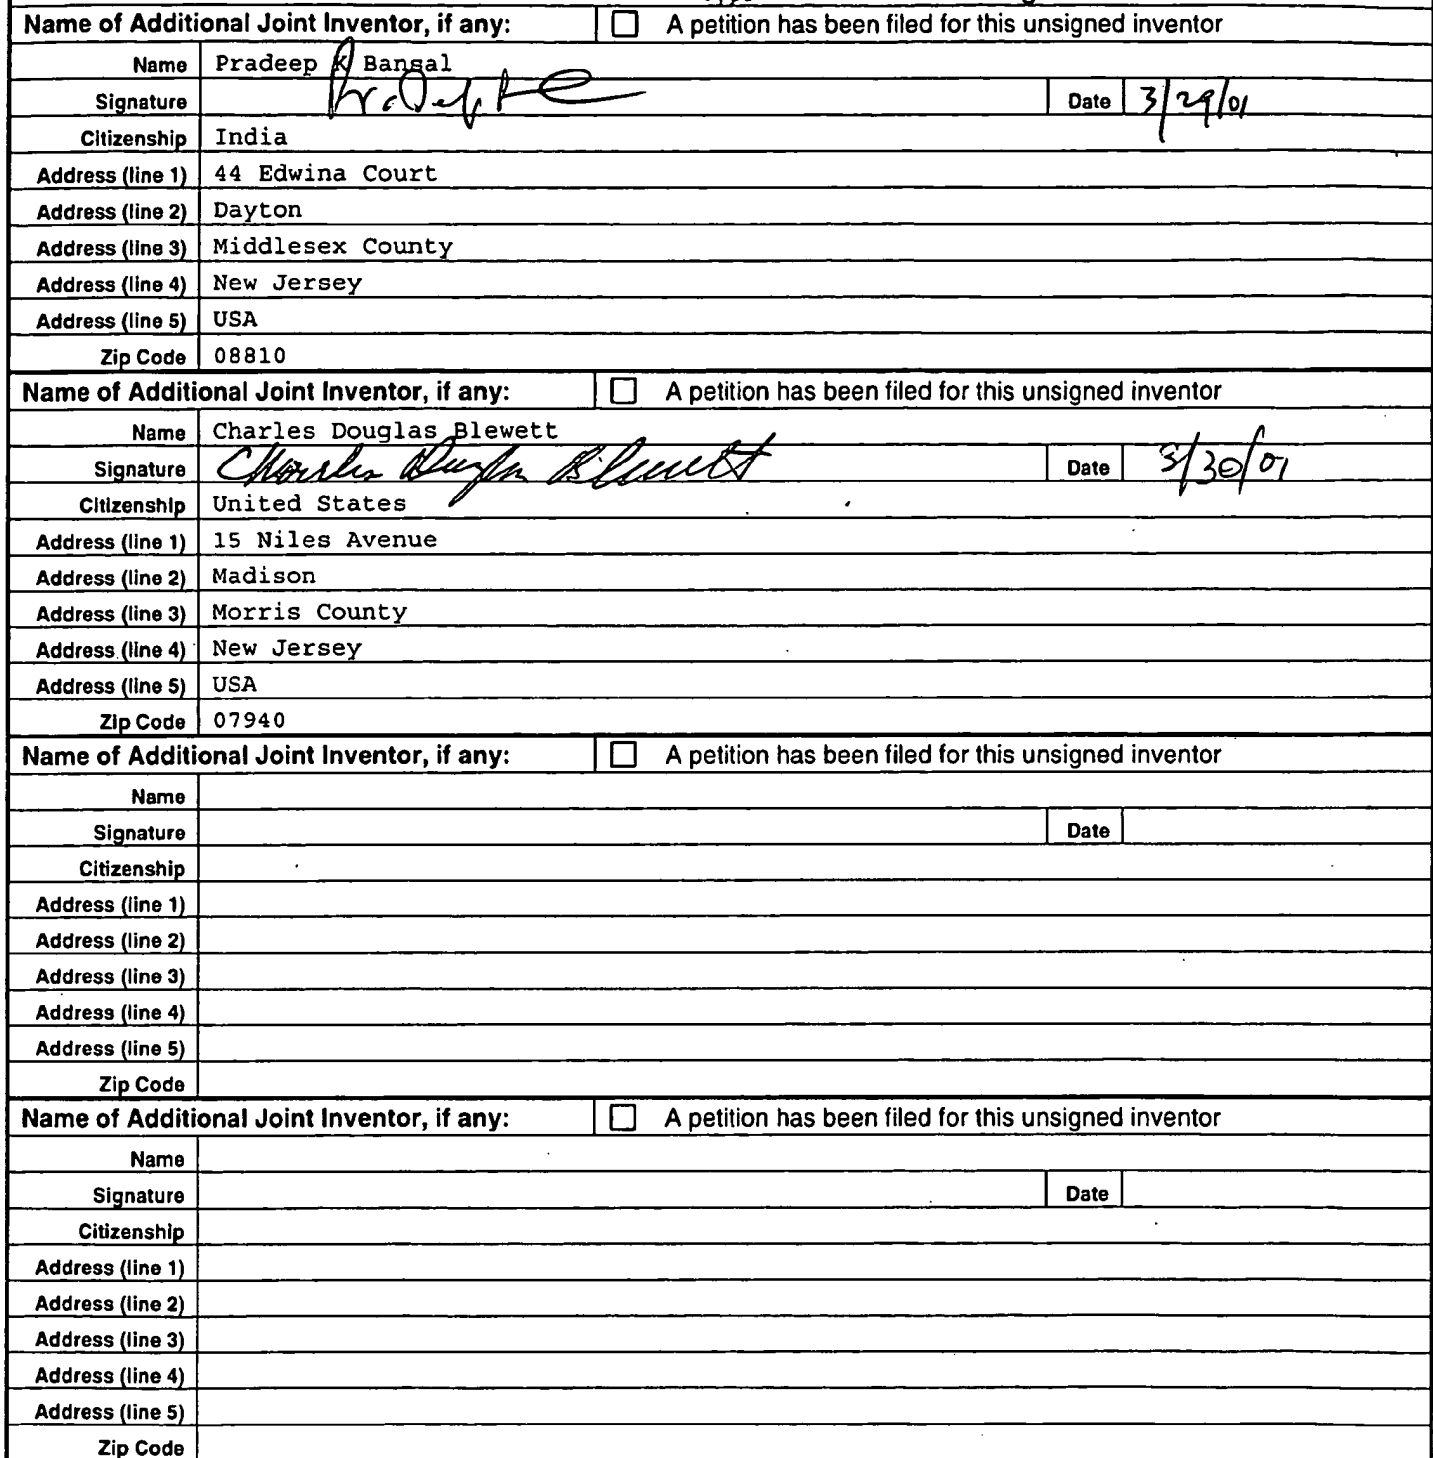 Name of Additional Joint Inventor, if any: ☐ A petition has been filed for this unsigned inventor
Name Pradeep K Bansal
Signature Date 3/29/01
Citizenship India
Address (line 1) 44 Edwina Court
Address (line 2) Dayton
Address (line 3) Middlesex County
Address (line 4) New Jersey
Address (line 5) USA
Zip Code 08810
Name of Additional Joint Inventor, if any: ☐ A petition has been filed for this unsigned inventor
Name Charles Douglas Blewett
Signature Charles Douglas Blewett Date 3/30/01
Citizenship United States
Address (line 1) 15 Niles Avenue
Address (line 2) Madison
Address (line 3) Morris County
Address (line 4) New Jersey
Address (line 5) USA
Zip Code 07940
Name of Additional Joint Inventor, if any: ☐ A petition has been filed for this unsigned inventor
Name
Signature Date
Citizenship
Address (line 1)
Address (line 2)
Address (line 3)
Address (line 4)
Address (line 5)
Zip Code
Name of Additional Joint Inventor, if any: ☐ A petition has been filed for this unsigned inventor
Name
Signature Date
Citizenship
Address (line 1)
Address (line 2)
Address (line 3)
Address (line 4)
Address (line 5)
Zip Code